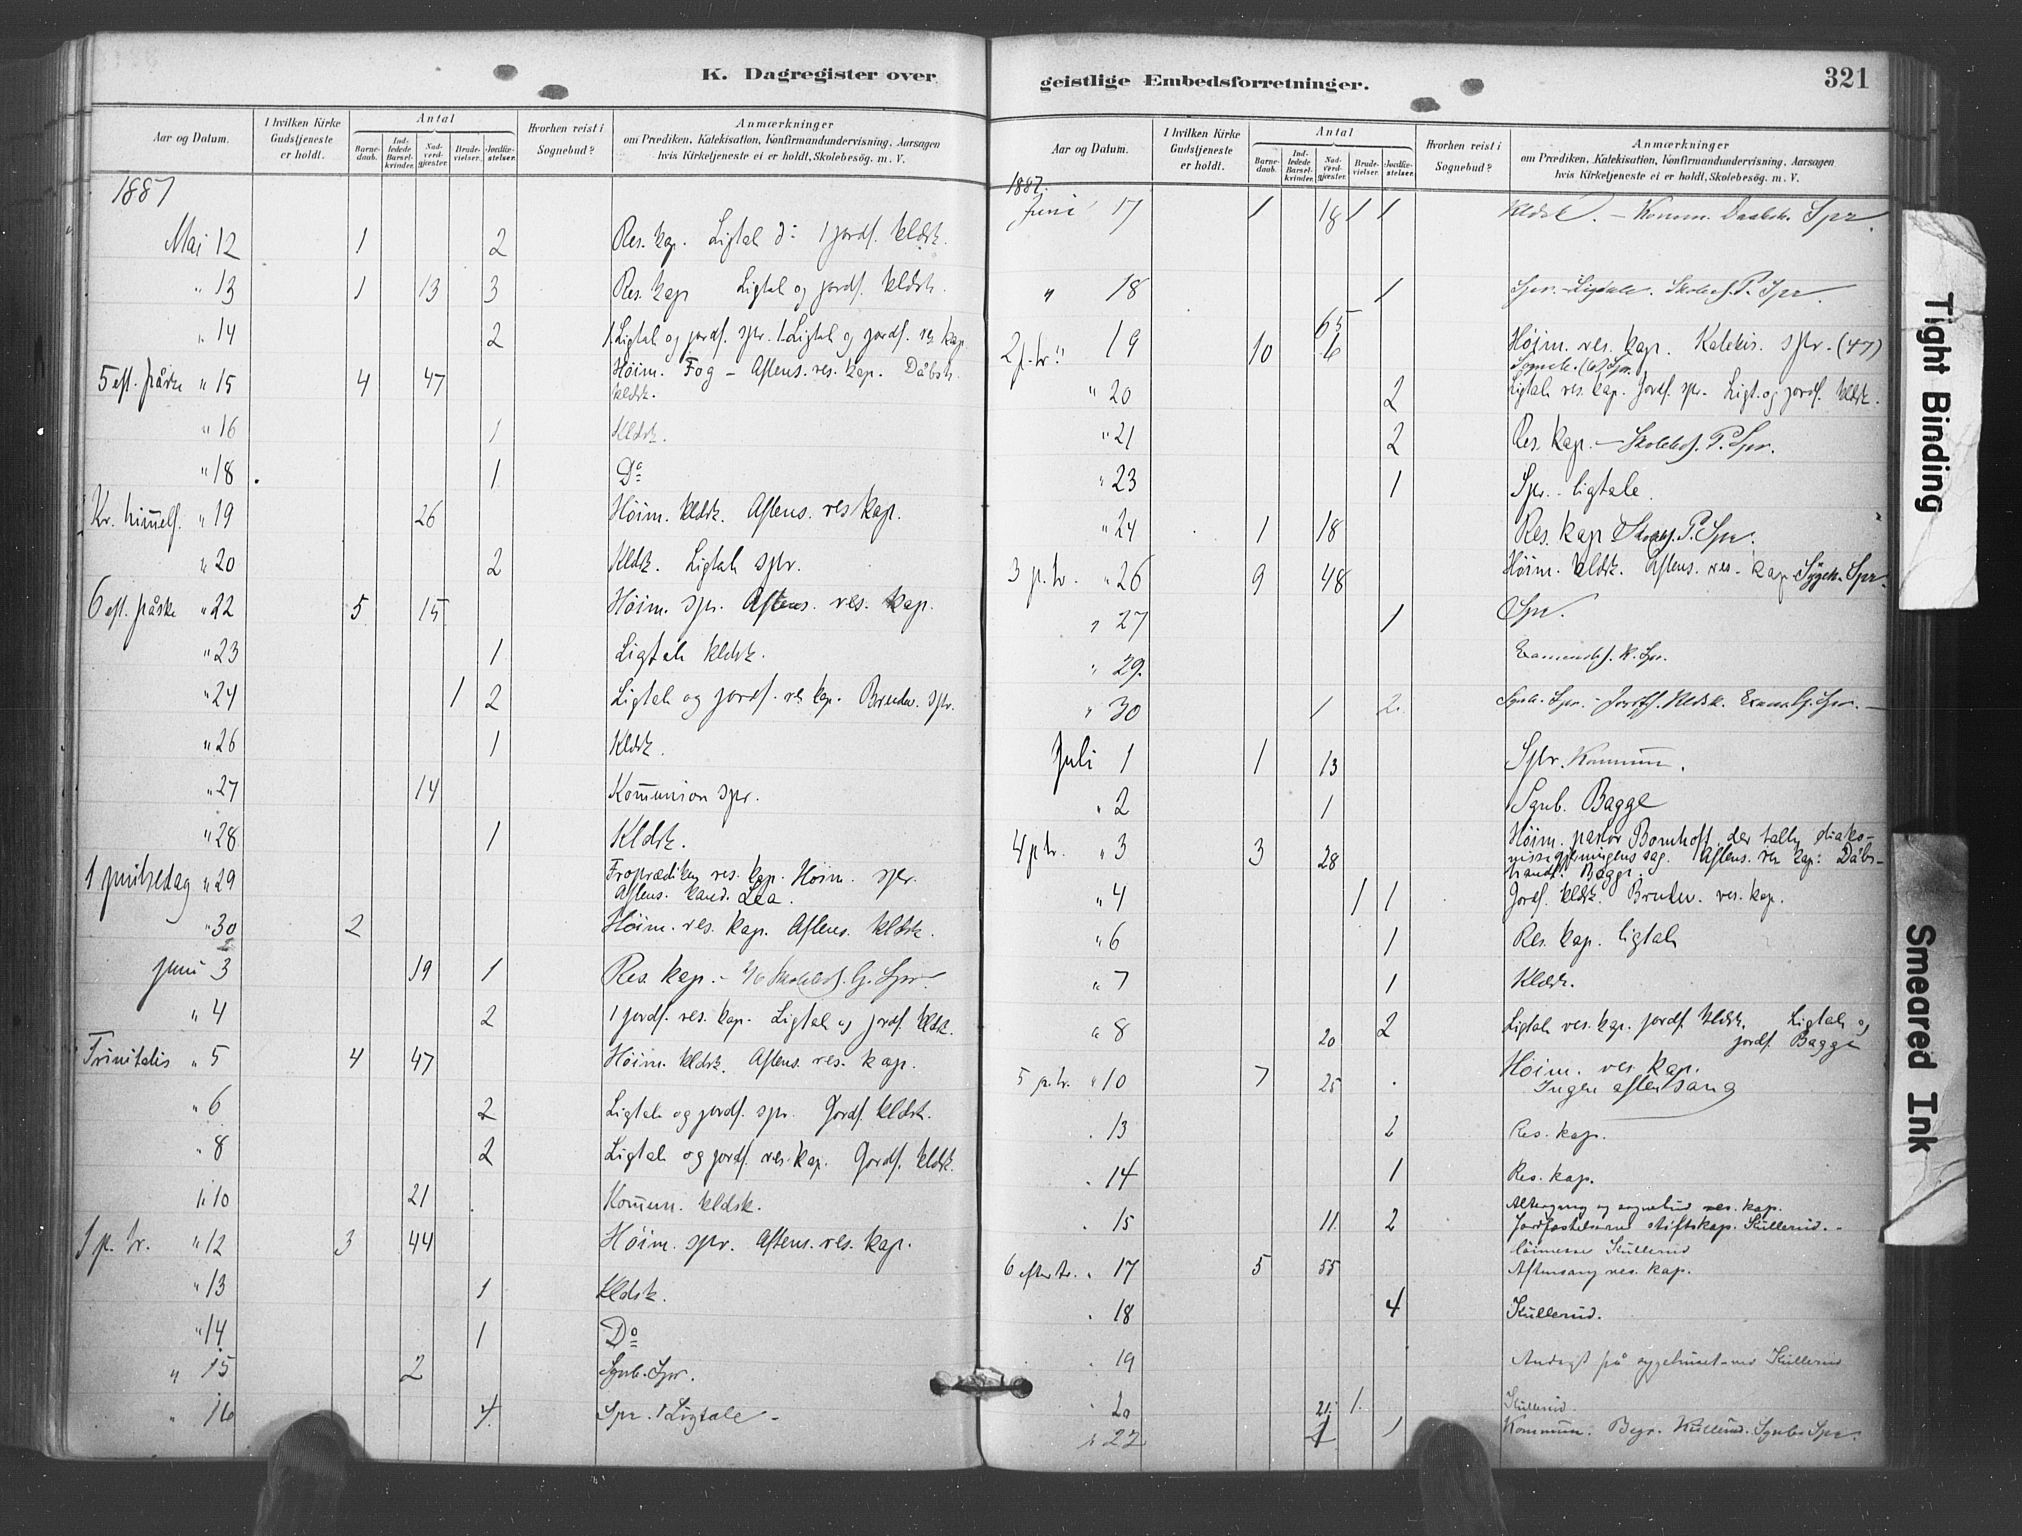 K. Dagregister over
Aar og Datum. I hvilken Kirke Gudstjeneste er holdt. Antal Barnedaab. Indledede Barselkvinder. Nadverdgjæster. Brudevielser. Jordfæstelser. Hvorhen reist i Sognebud? Anmærkninger om Prædiken, Katekisation, Konfirmandundervisning, Aarsagen hvis Kirketjeneste ei er holdt, Skolebesög. m. V.
1887
Mai 12 1 2 Res. kap. Ligtal 1 jordf. kldsk.
" 13 1 13 3 Res. kap Ligtal og jordf. kldsk.
" 14 2 1 Ligtal og jordf. spr. 1 Ligtal og jordf. res kap
5 eft. påske " 15 4 47 Höim. Fog – Aftens. res. kap. Dåbst.
kldsk.
" 16 1 Kldsk.
" 18 1 Do
Kr. himelf. " 19 26 Höim. kldsk. Aftens. res kap.
" 20 2 Kldsk. Ligtale spr.
6 eft. påske " 22 5 15 Höim. spr. Aftens. res. kap.
" 23 1 Ligtale kldsk.
" 24 1 2 Ligtale og jordf. res kap. Brudev. spr.
" 26 1 Kldsk.
" 27 14 Komunion spr.
" 28 1 Kldsk.
1 pintsedag " 29 Froprædiken res. kap. Höim. spr.
Aftens. kand. Lea.
" 30 2 Höim. res. kap. Aftens. kldsk.
juni 3 19 1 Res. kap. – Skolebes. G. Spr.
" 4 2 1 jordf. res. kap. Ligtal og jordf. kldsk.
Trinitatis " 5 4 47 Höim. kldsk. Aftens. res. kap.
" 6 2 Ligtale og jordf. spr. Jordf. kldsk.
" 8 2 Ligtale og jordf. res. kap. Jordf. kldsk.
" 10 21 Komun. kldsk.
1 p. tr. " 12 3 44 Höim. spr. Aftens. res. kap.
" 13 1 kldsk.
" 14 1 Do
" 15 2 Sgnb. Spr.
" 16 4 Spr. 1 Ligtale –
geistlige Embedsforretninger. 321
Aar og Datum. I hvilken Kirke Gudstjeneste er holdt. Antal Barnedaab. Indledede Barselkvinder. Nadverdgjæster. Brudevielser. Jordfæstelser. Hvorhen reist i Sognebud? Anmærkninger om Prædiken, Katekisation, Konfirmandundervisning, Aarsagen hvis Kirketjeneste ei er holdt, Skolebesög. m. V.
1887.
Juni 17 1 18 1 1 Kldsk. – Komm. Spr.
" 18 1 Spr. Ligtale. Skolebes. P. Spr.
2 p. tr " 19 10 65 6 Höim. res. kap. Katekis. spr. (47)
Sogneb. (6) Spr.
" 20 2 Ligtale res. kap. Jordf. spr. Ligt. og jordf. kldsk.
" 21 2 Res. kap. – Skolebes. P. Spr.
" 23 1 Spr. – ligtale.
" 24 1 18 Res. kap Skolebes. P. Spr.
3 p. tr. " 26 9 48 Höim. kldsk. Aftens. res. kap. Spr.
" 27 1 Spr.
" 29. Spr.
" 30 1 2. Sgnb. Spr. – Jordf. Kldsk. Spr. –
Juli 1 1 13 Spr. Kommun.
" 2 1 Sgnb. Bagge
4 p tr. " 3 3 28 Höim. pastor Bomhoff, der talte diako-
nissegjerningens sag. Aftens. res kap. Dåbs-
handl. Bagge.
" 4 1 1 Jordf. kldsk. Brudev. res. kap.
" 6 1 Res. kap. ligtale
" 7 1 Kldsk.
" 8 20 2 Ligtale res. kap. jordf. kldsk. Ligtale og
jordf. Bagge
5 p. tr. " 10 7 25 Höim. res. kap.
Ingen aftensang
" 13 2 Res. kap.
" 14 1 Res. kap.
" 15 11. 2 Altergang og sognebud res. kap.
Jordfæstelserne stiftskap. Kullerud. –
6 efter tr. " 17 5 55 Höimesse Kullerud
Aftensang res. kap.
" 18 4 Kullerud.
" 19 Andagt på sygehuset ved Kullerud
" 20 21. 1. Kullerud.
" 22 1 Kommun. Begr. Kullerud. Sgnb. Spr.
Tight Binding
Smeared Ink